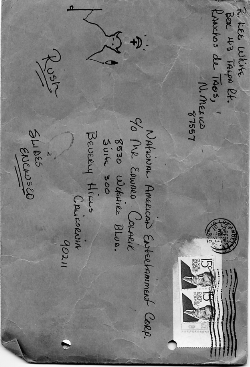 R. Lee White
Box 43 Talpa Rt.
Ranchos de Taos,
N. Mexico
87557
Rush
National American Entertainment Corp.
c/o Mr Edward
8530 Wilshire Blvd.
Suite 300
Beverly Hills
California
90211
Slides
Enclosed
15
15